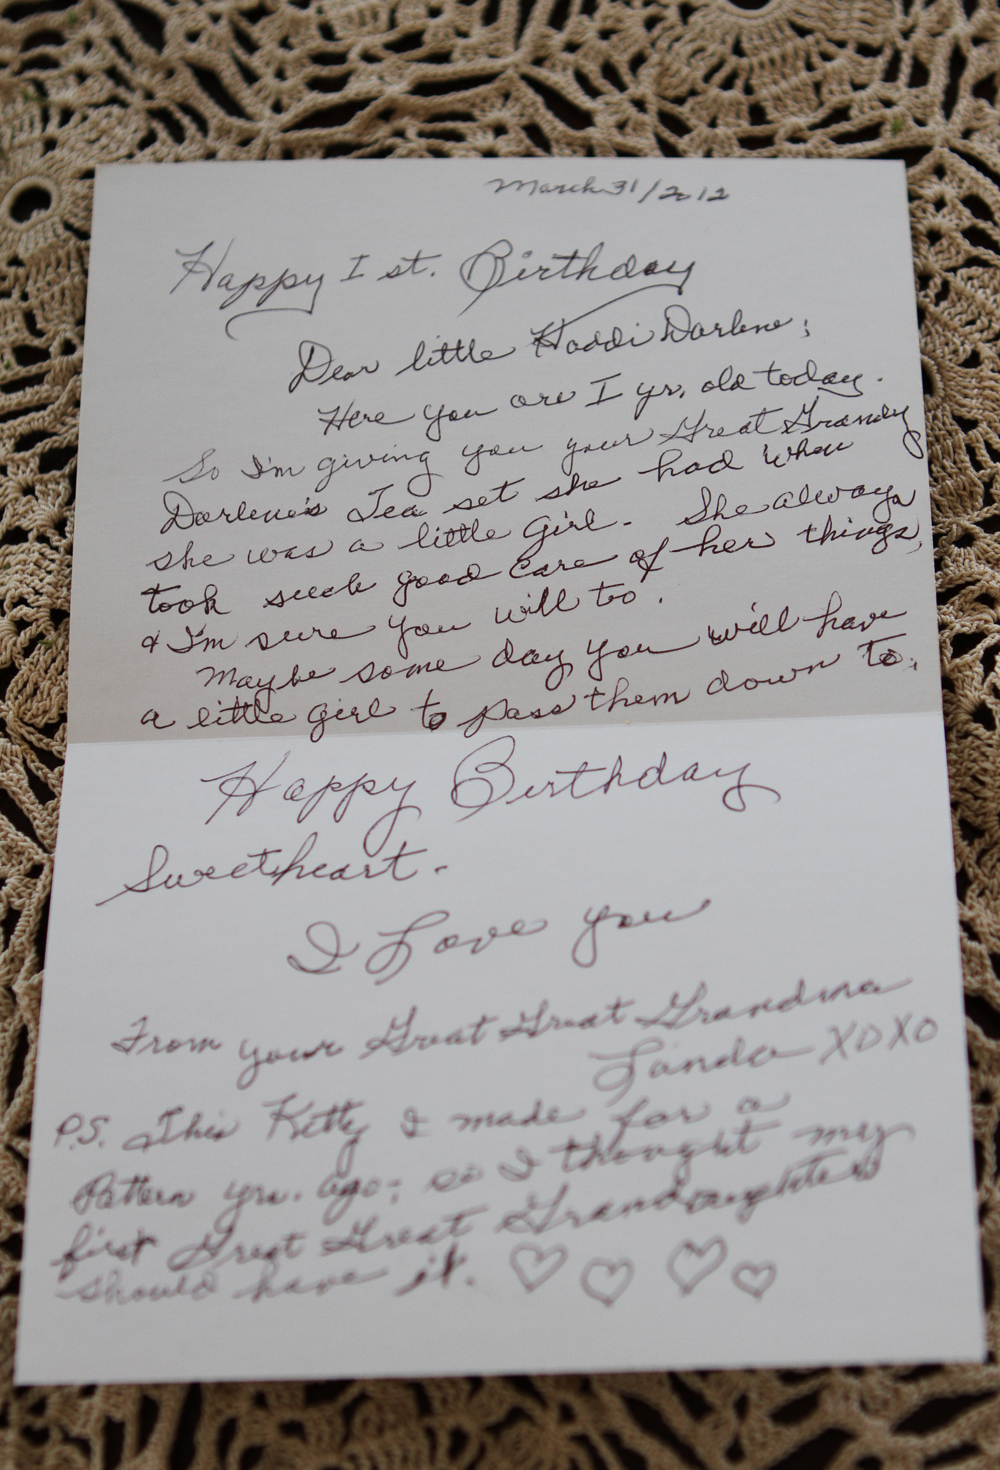 March 31/2012
Happy 1 st. Birthday
Dear little Haddi Darlene;
Here you are 1 yr. old today.
So I'm giving you your Great Grandy
Darlene's Tea set she had when
she was a little girl. She always
took such good care of her things,
& I'm sure you will to.
Maybe some day you will have
a little girl to pass them down to.
Happy Birthday
Sweetheart.
I Love you
From your Great Great Grandma
Landa XOXO
P.S. This Kitty I made for a
Pattern yrs. ago; so I thought my
first Great Great Granddaughter
should have it. ♡ ♡ ♡ ♡